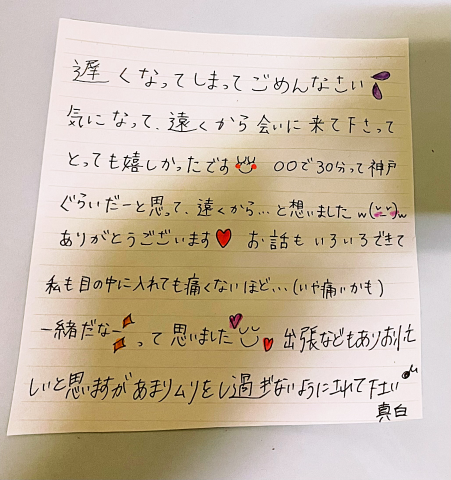 遅くなってしまってごめんなさい
気になって、遠くから会いに来て下さって
とっても嬉しかったです 〇〇で30分って神戸
ぐらいだーと思って、遠くから…と想いました w(˘˘)w
ありがとうございます♥ お話もいろいろできて
私も目の中に入れても痛くないほど…(いや痛いかも)
一緒だなーって思いました 出張などもありお忙
しいと思いますがあまりムリをし過ぎないようにされて下さい♪
真白